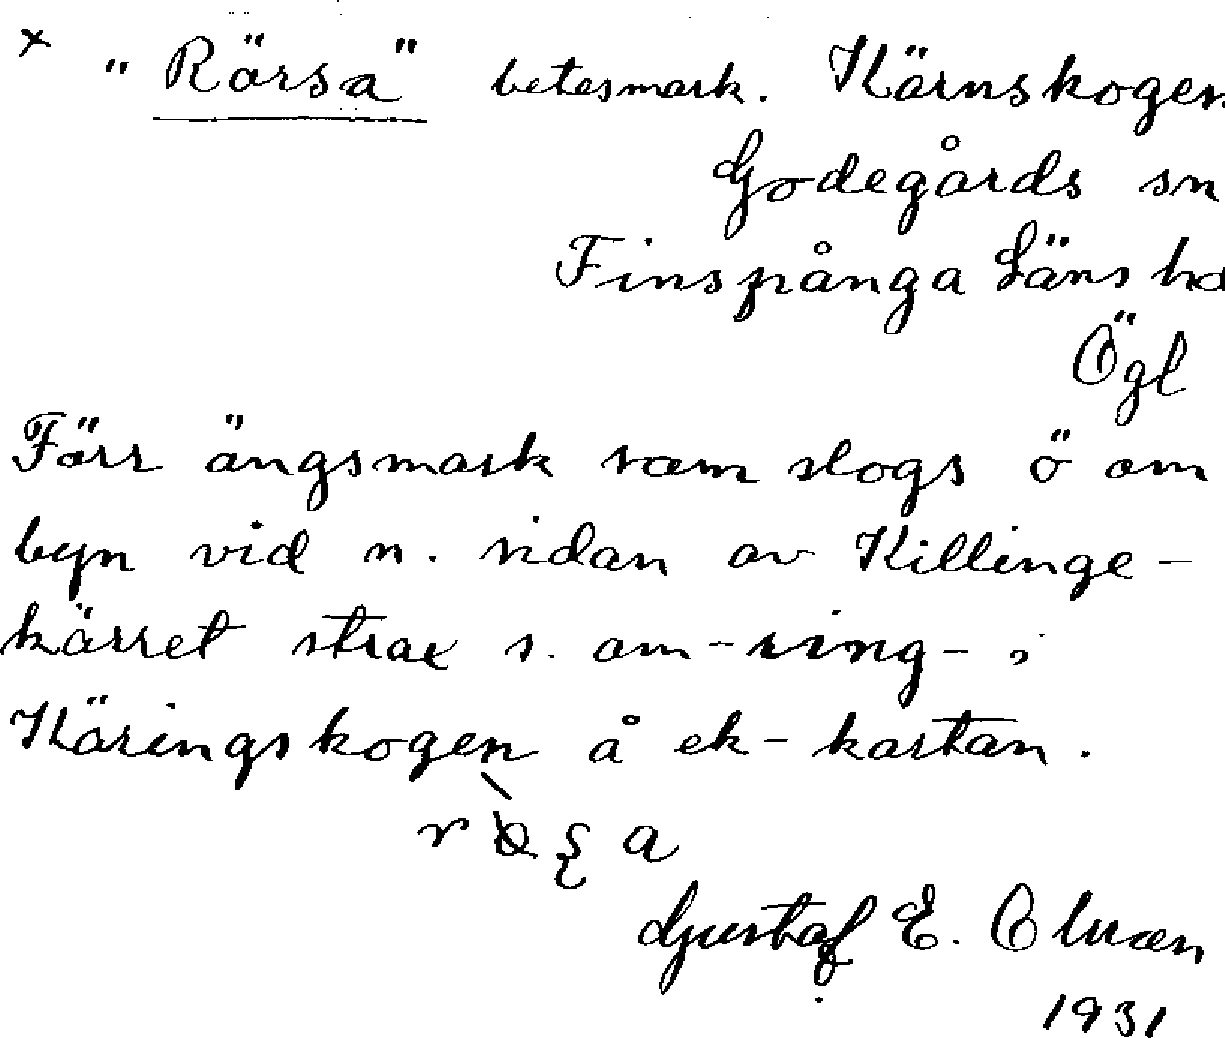 × "Rörsa" betesmark. Kärnskogen
Godegårds sn
Finspånga Läns hd
Ögl
Förr ängsmark som slogs ö om
byn vid n. sidan av Killinge-
kärret strax s. om -ring- i
Käringskogen å ek-kartan.
Gustaf E. Olsson
1931